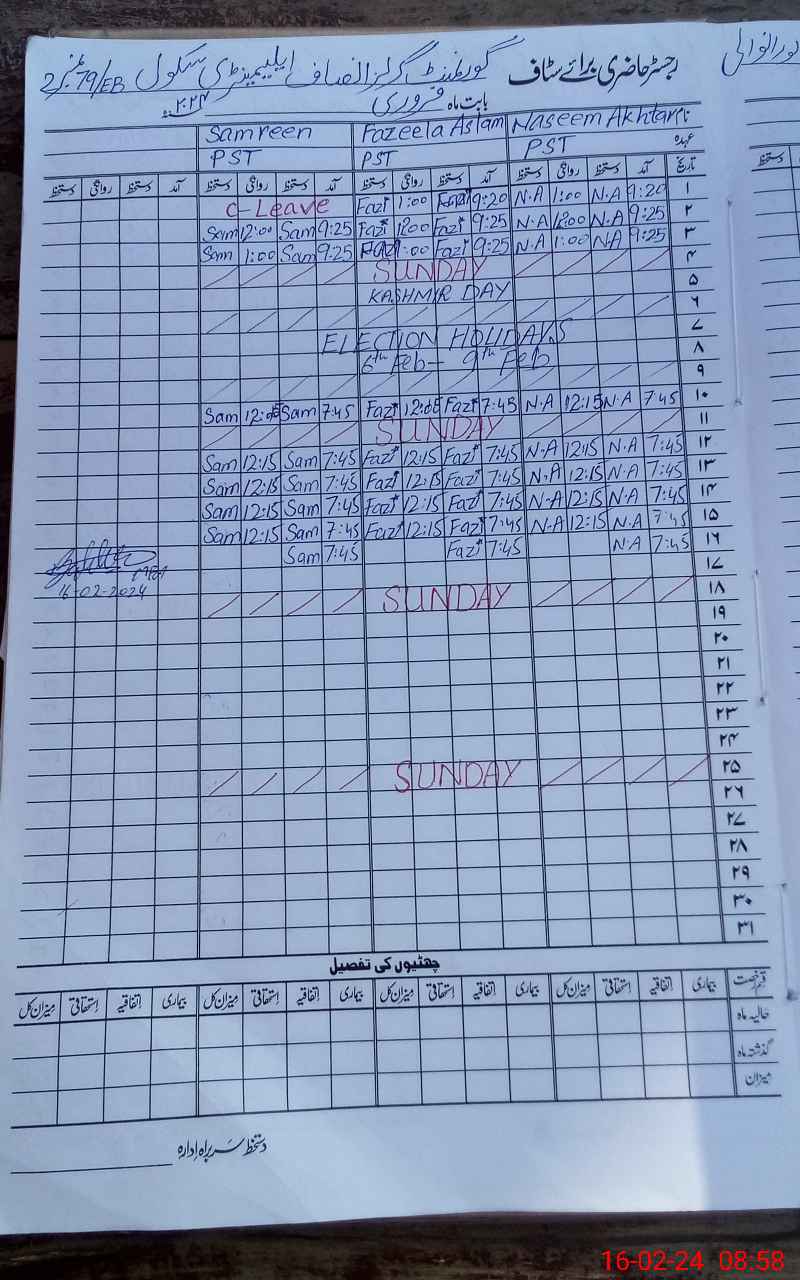 رجسٹر حاضری برائے سٹاف گورنمنٹ گرلز انصاف ایلیمینٹری سکول نمبر 2 79/EB
بابت ماہ فروری ۲۰۲۴ء
عہدہ Naseem Akhtar Fazeela Aslam Samreen
PST PST PST
تاریخ آمد دستخط روانگی دستخط آمد دستخط روانگی دستخط آمد دستخط روانگی دستخط آمد دستخط روانگی دستخط
۱ 9:20 N.A 1:00 N.A 9:20 Fazi 1:00 Fazi C-Leave
۲ 9:25 N.A 12:00 N.A 9:25 Fazi 12:00 Fazi 9:25 Sam 12:00 Sam
۳ 9:25 N.A 1:00 N.A 9:25 Fazi 1:00 Fazi 9:25 Sam 1:00 Sam
۴ SUNDAY
۵ KASHMIR DAY
۶
۷ ELECTION HOLIDAYS
۸ 6th Feb – 9th Feb
۹
۱۰ 7:45 N.A 12:15 N.A 7:45 Fazi 12:05 Fazi 7:45 Sam 12:05 Sam
۱۱ SUNDAY
۱۲ 7:45 N.A 12:15 N.A 7:45 Fazi 12:15 Fazi 7:45 Sam 12:15 Sam
۱۳ 7:45 N.A 12:15 N.A 7:45 Fazi 12:15 Fazi 7:45 Sam 12:15 Sam
۱۴ 7:45 N.A 12:15 N.A 7:45 Fazi 12:15 Fazi 7:45 Sam 12:15 Sam
۱۵ 7:45 N.A 12:15 N.A 7:45 Fazi 12:15 Fazi 7:45 Sam 12:15 Sam
۱۶ 7:45 N.A 7:45 Fazi 7:45 Sam
۱۷ 16-02-2024
۱۸ SUNDAY
۱۹
۲۰
۲۱
۲۲
۲۳
۲۴
۲۵ SUNDAY
۲۶
۲۷
۲۸
۲۹
۳۰
۳۱
چھٹیوں کی تفصیل
قسم رخصت بیماری اتفاقیہ استحقاقی میزان کل بیماری اتفاقیہ استحقاقی میزان کل بیماری اتفاقیہ استحقاقی میزان کل بیماری اتفاقیہ استحقاقی میزان کل
حالیہ ماہ
گذشتہ ماہ
میزان
دستخط سربراہ ادارہ
16-02-24 08:58